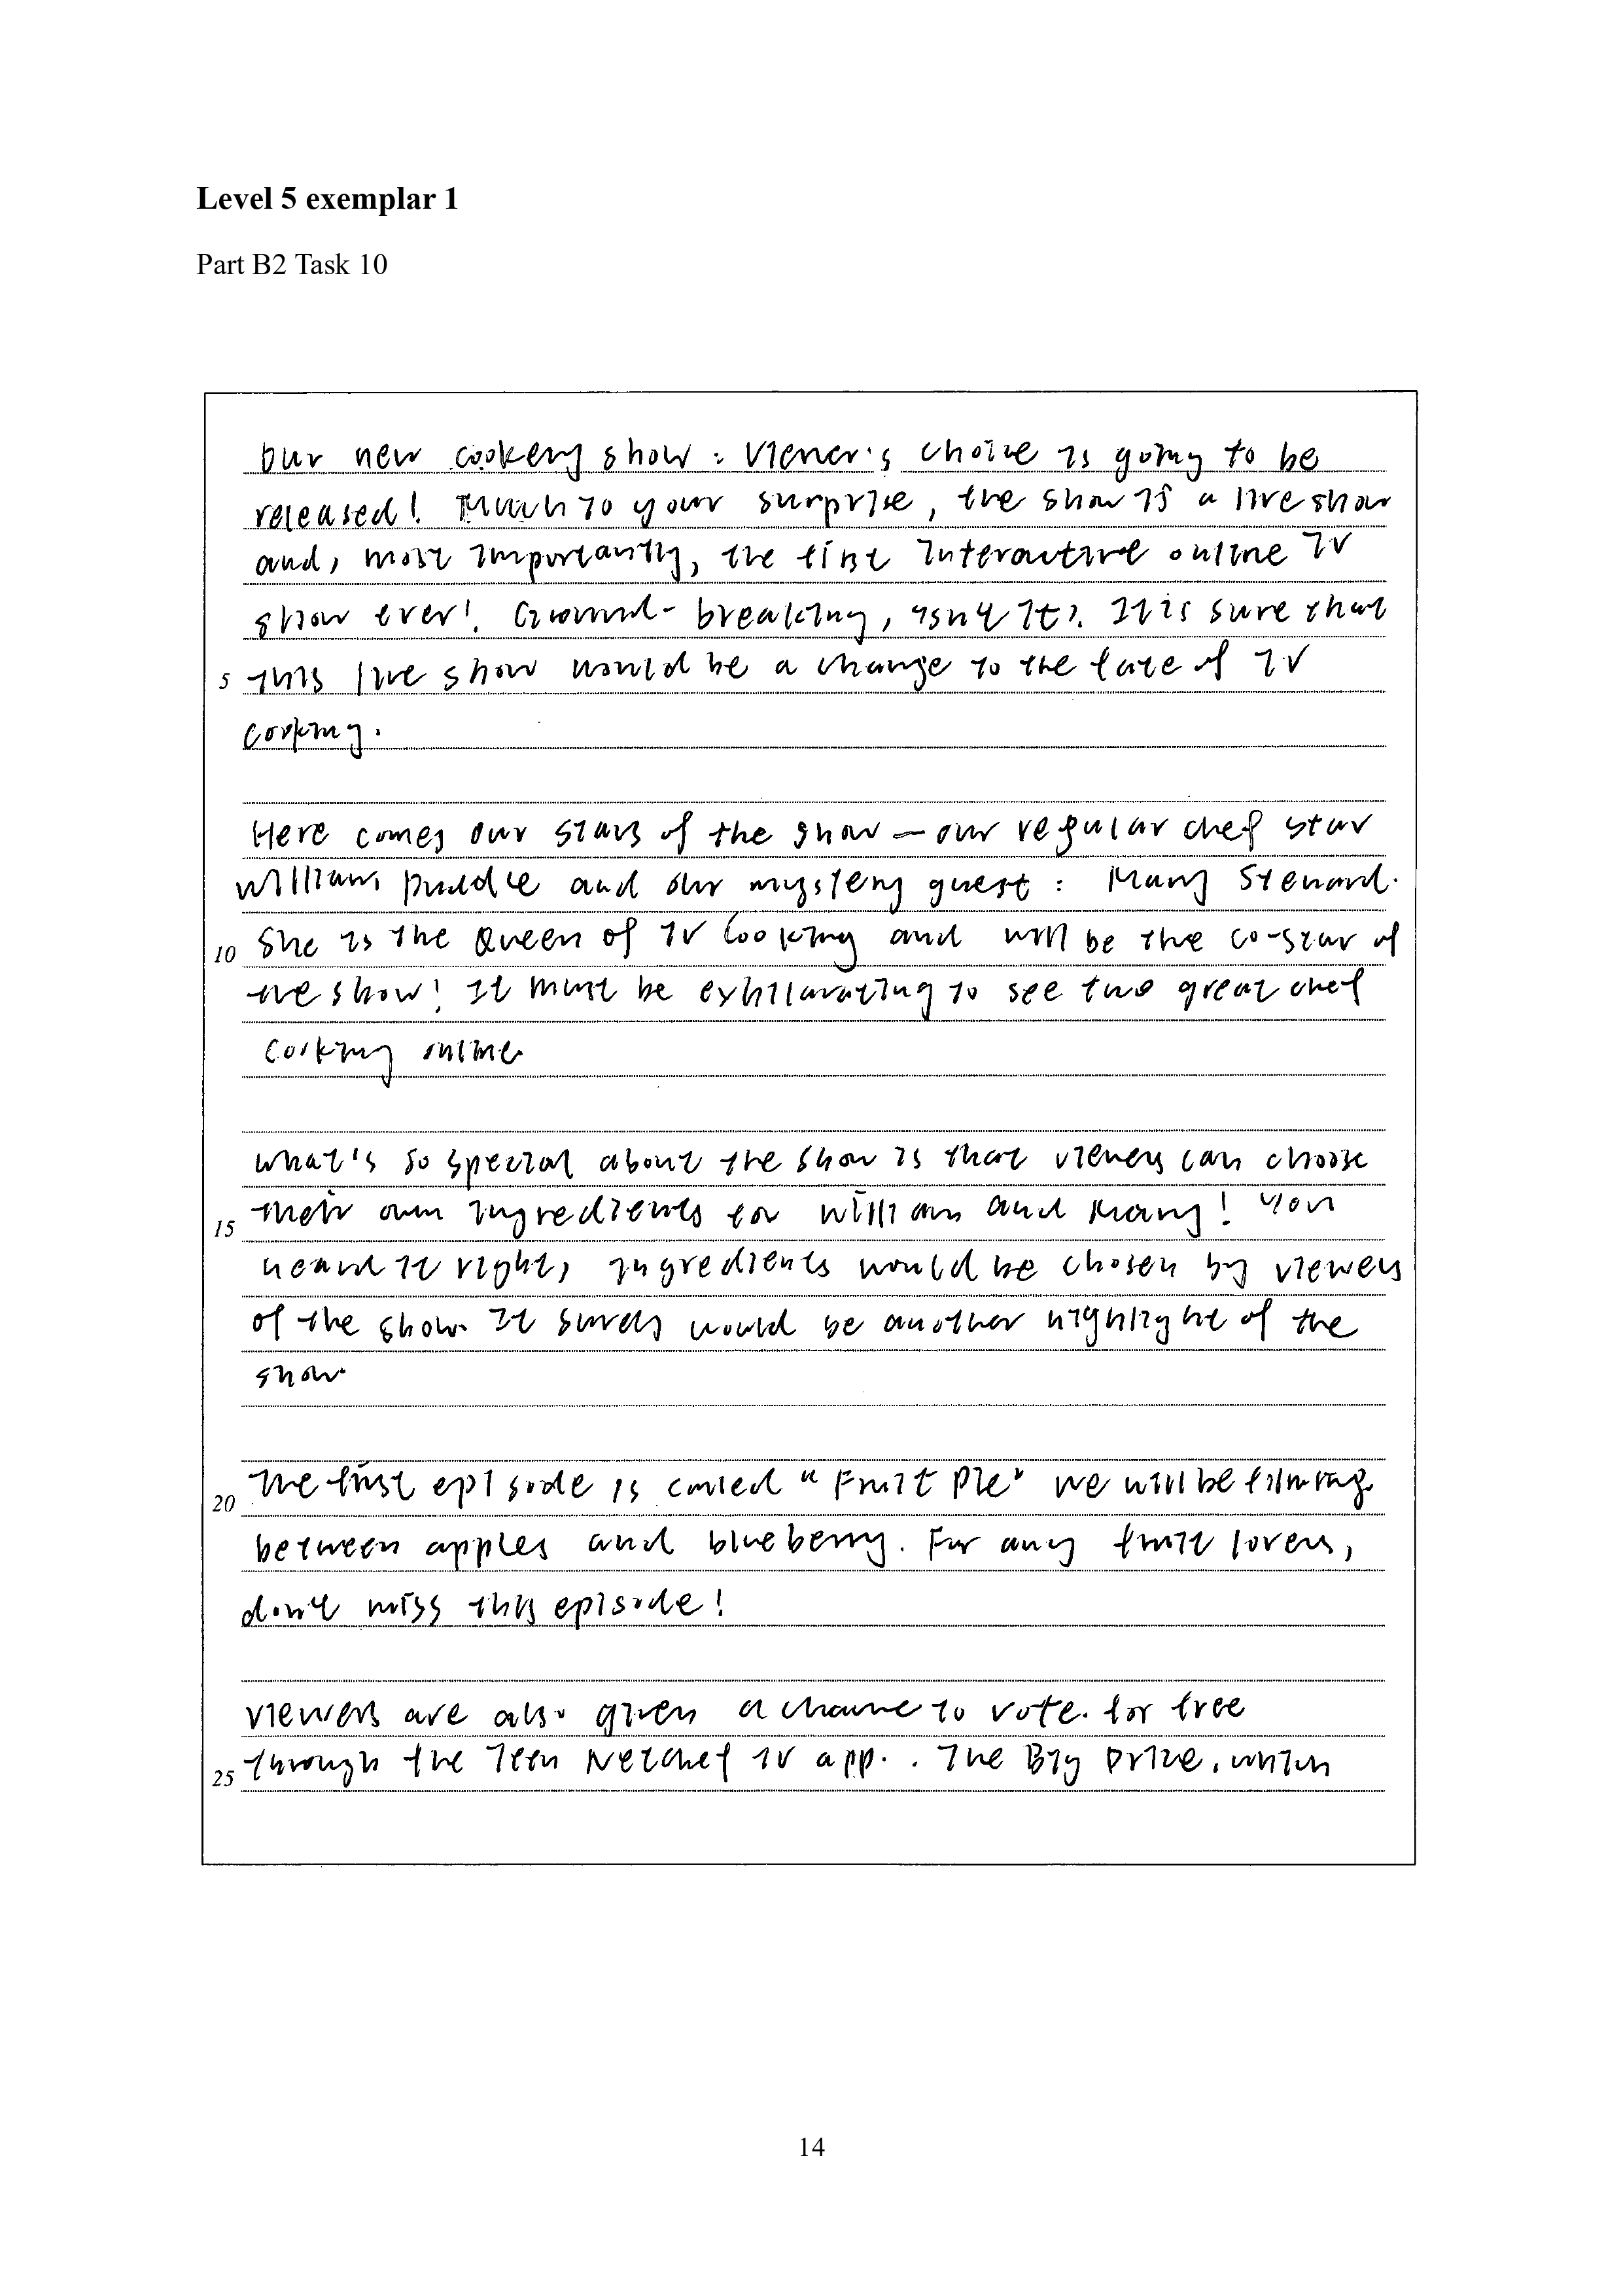 Level 5 exemplar 1
Part B2 Task 10
Our new cookery show : Viewer's choice is going to be
released! Much to your surprise, the show is a live show
and, most importantly, the first interactive online TV
show ever! Ground-breaking, isn't it? It is sure that
5 this live show would be a change to the face of TV
cooking.
Here comes our stars of the show — our regular chef star
William Puddle and our mystery guest : Mary Steward.
10 She is the Queen of TV Cooking and will be the co-star of
the show! It must be exhilarating to see two great chef
cooking online.
What's so special about the show is that viewers can choose
15 their own ingredients for William and Mary! You
heard it right, ingredients would be chosen by viewers
of the show. It surely would be another highlight of the
show.
20 The first episode is called "Fruit Pie" we will be filming
between apples and blueberry. For any fruit lovers,
don't miss this episode!
Viewers are also given a chance to vote. for free
25 through the Teen Netchef TV app. . The Big Prize, which
14